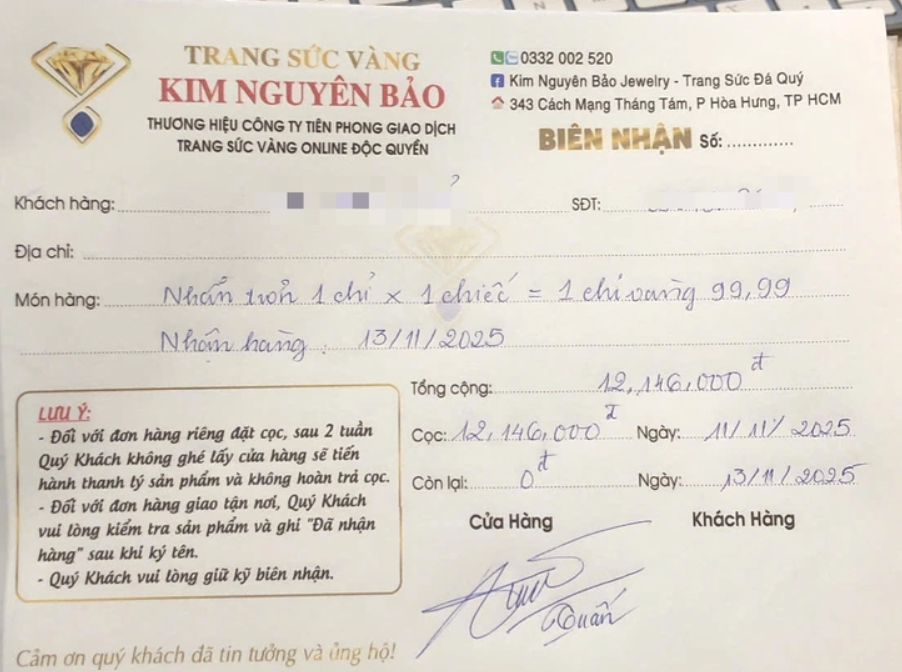 TRANG SỨC VÀNG
KIM NGUYÊN BẢO
THƯƠNG HIỆU CÔNG TY TIÊN PHONG GIAO DỊCH
TRANG SỨC VÀNG ONLINE ĐỘC QUYỀN
0332 002 520
Kim Nguyên Bảo Jewelry - Trang Sức Đá Quý
343 Cách Mạng Tháng Tám, P Hòa Hưng, TP HCM
BIÊN NHẬN Số:
Khách hàng: SĐT:
Địa chỉ:
Món hàng: Nhẫn trơn 1 chỉ x 1 chiếc = 1 chỉ vàng 99,99
Nhận hàng: 13/11/2025
Tổng cộng: 12,146,000đ
Cọc: 12,146,000đ Ngày: 11/11/2025
Còn lại: 0đ Ngày: 13/11/2025
LƯU Ý:
- Đối với đơn hàng riêng đặt cọc, sau 2 tuần
Quý Khách không ghé lấy cửa hàng sẽ tiến
hành thanh lý sản phẩm và không hoàn trả cọc.
- Đối với đơn hàng giao tận nơi, Quý Khách
vui lòng kiểm tra sản phẩm và ghi "Đã nhận
hàng" sau khi ký tên.
- Quý Khách vui lòng giữ kỹ biên nhận.
Cửa Hàng Khách Hàng
Quấn
Cảm ơn quý khách đã tin tưởng và ủng hộ!